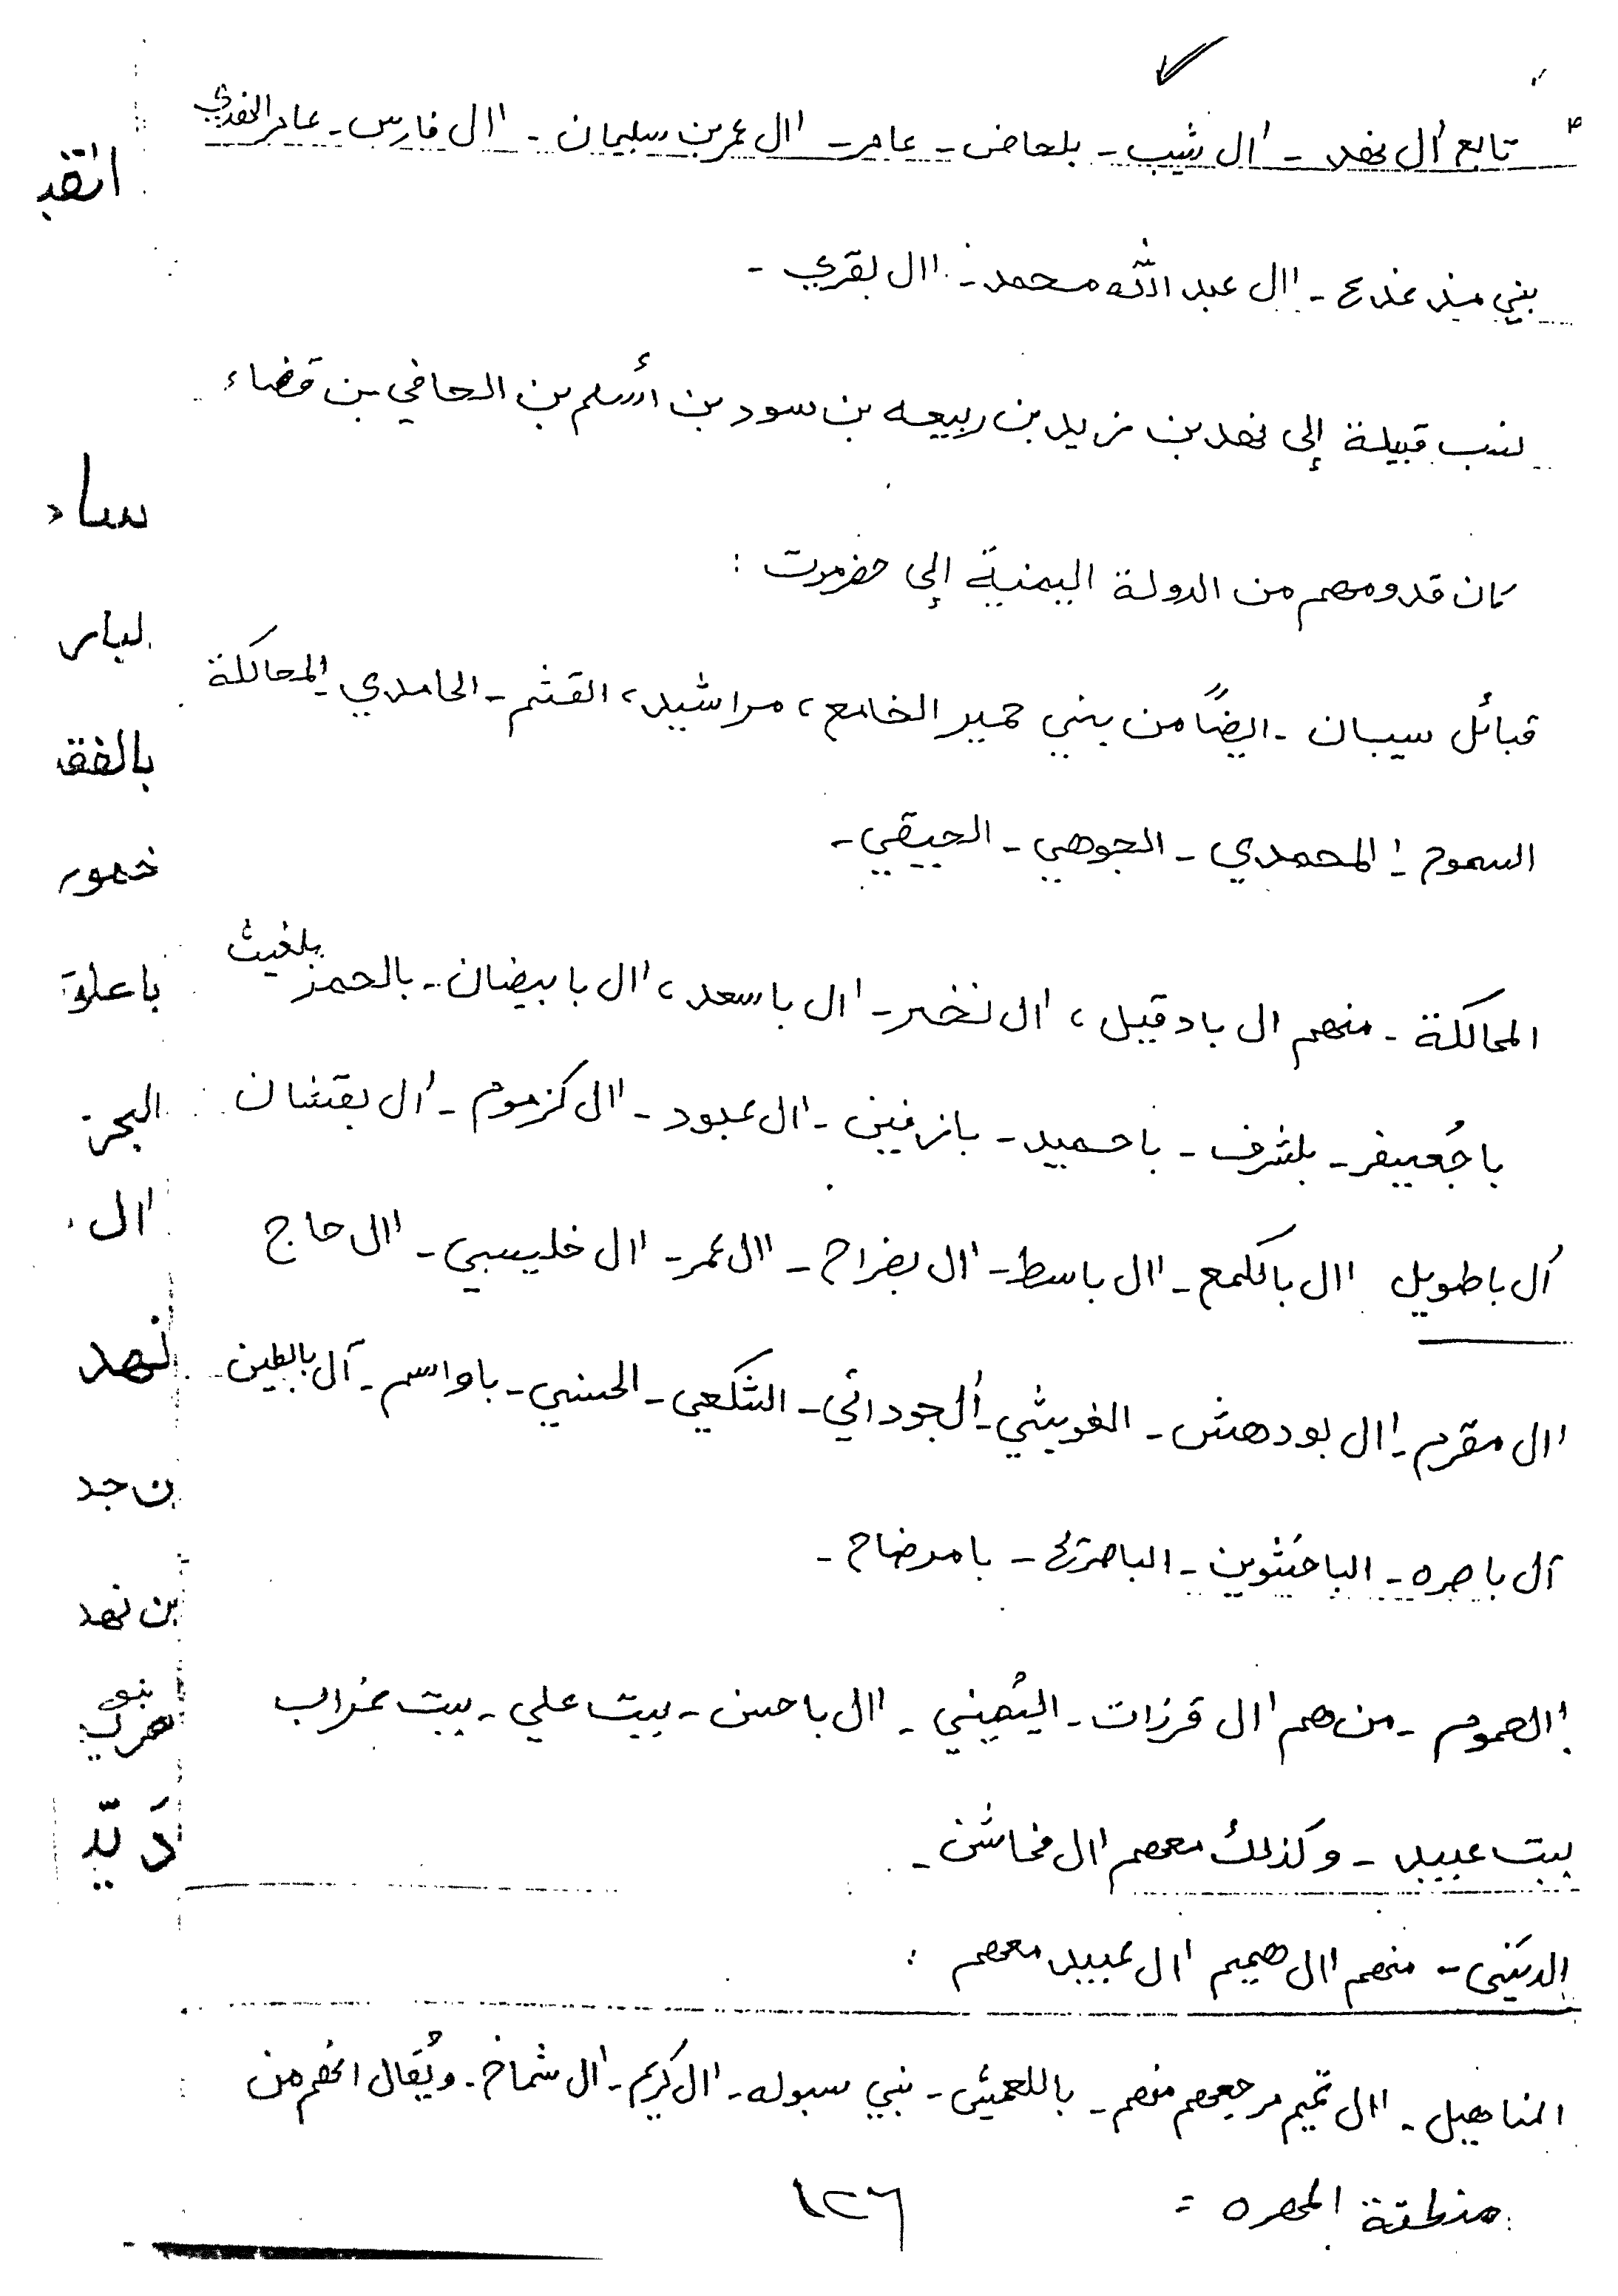 تابع آل نهد - ال شيب - بلحاض - عامر - ال عمر بن سليمان - ال فارس - عامر النهدي
بني منذ عذع - ال عبد الله محمد - ال بقري -
نسب قبيلة إلى نهد بن زيد بن ربيعه بن سود بن أسلم بن الحافي بن قضاء
كان قدومهم من الدولة اليمنية إلى حضرموت :
قبائل سيبان - ايضاً من بني حمير الخامع، مراشيد، القثم - الحامدي المحالكة
السموح - المحمدي - الجوهي - الحيقي -
المحالكة - منهم ال بادقيل، ال نخر - ال باسعد، ال بابيضان - بالحمز بلغيث
باجُعيفر - بلشرف - باحميد - بازفين - ال عبود - ال كزموم - ال بقشان
آل باطويل ال بالكمع - ال باسط - ال بضراح - ال عمر - ال خليسي - ال حاج
ال مقرم - ال بودهش - الغويثي - آل جوداتي - الشكعي - الحسني - باواسم - آل بالطين
آل باصره - الباحثوين - - بامرضاح -
الصموم - من هم ال قرزات - - ال باحسن - بيت علي - بيت غراب
بيت عبيد - وكذلك معهم ال مخاشن -
الديني - منهم ال هميم ال عبيد معهم :
المناهيل - ال تميم مرجعهم منهم - باللعميش - بني سبوله - ال كريم - ال شماخ - ويُقال انهم من
منطقة المهره =
١٢٦
انقذ
ساد
لبار
بالفق
خمور
باعلو
البحر
ال
نهد
ن جد
بن نهد
بنو
دَ يّد